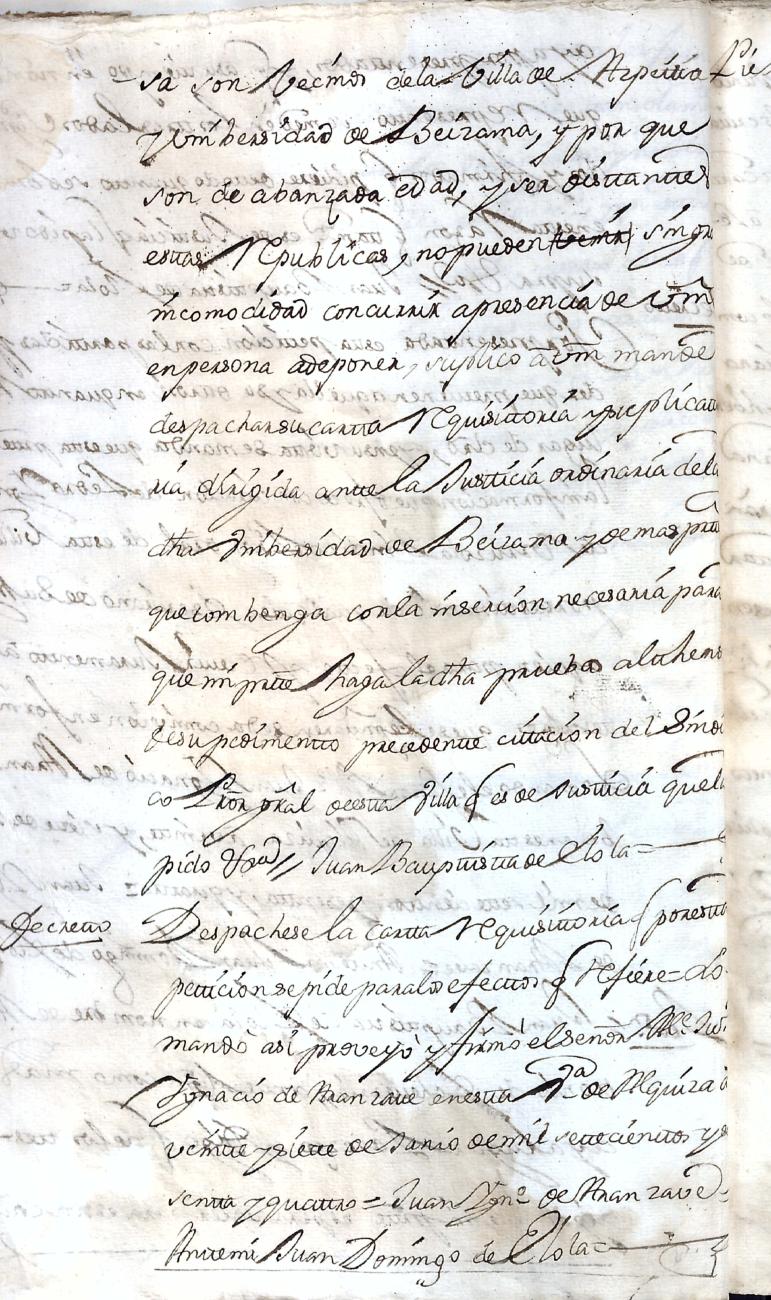 sa son Vecinos dela Villa de Azpeitia
y Vnibersidad de Beizama, y por que
son de abanzada edad, y ser distantes
estas Republicas, no pueden venir sin gr
incomodidad concurrir a presencia de Vm
en persona a deponer, suplico â Vm mande
despachar su carta requisitoria y suplicato
ria dirigida ante la Justicia ordinaria dela
dha Vnibersidad de Beizama y demas prtes
que combenga con la insercion necesaria para
que mi prte haga la dha prueba al thenor
de su pedimento precedente citacion del Sindi
co Pror gral de esta Villa q es de Justicia que la
pido &ra // Juan Bauptista de Elola =
Decretto Despachese la carta requisitoria q por esta
peticion se pide para los efectos q refiere = Lo
mandò asi proveyò y firmò el señor Alce Juº
Ygnacio de Aranzave en esta Vª de Alquiza a
veinte y siete de Junio de mil setecientos y se
senta y quattro = Juan Ygnº de Aranzave =
Antemi Juan Domingo de Elola =